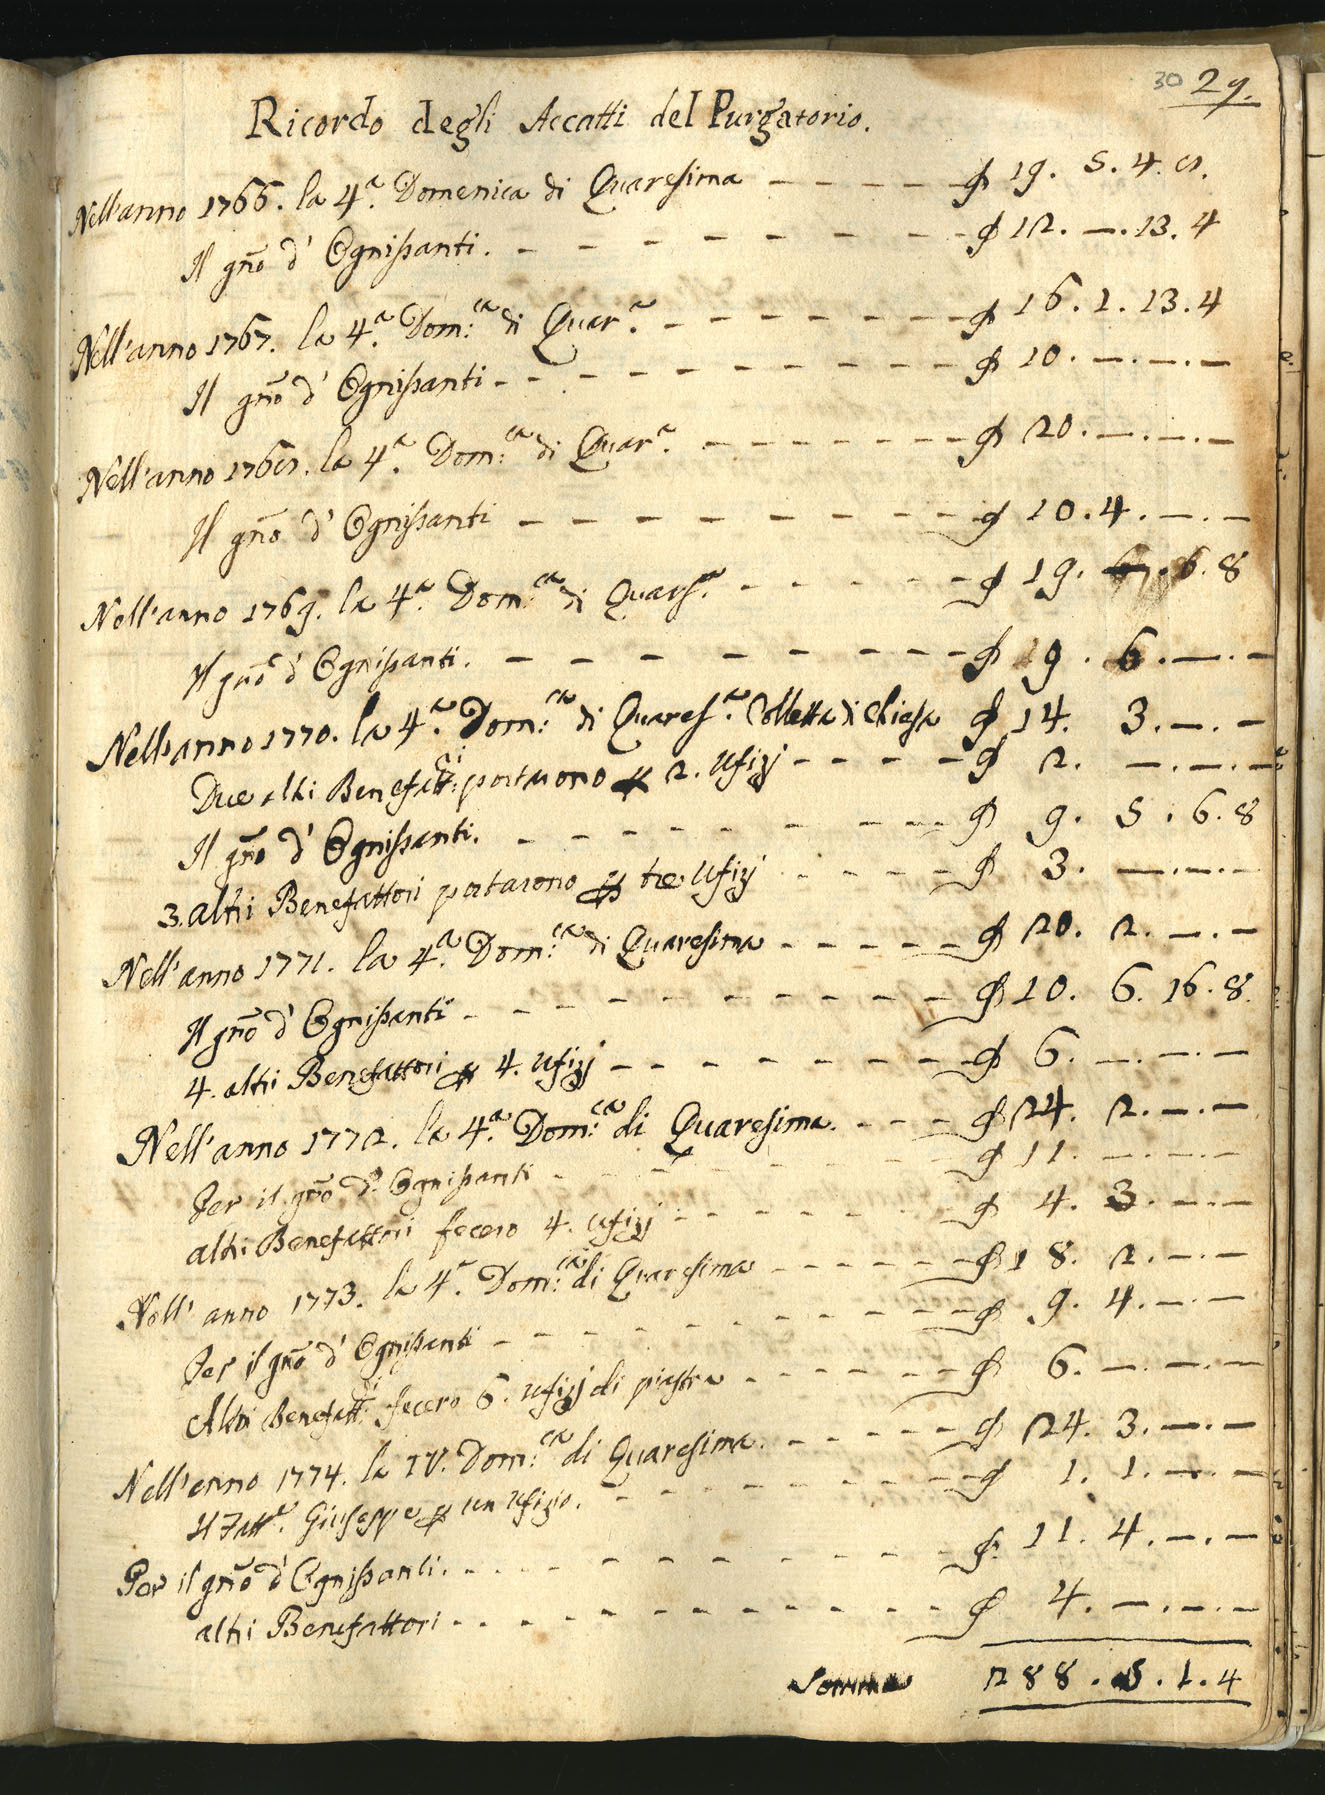 30 29.
Ricordo degli Accatti del Purgatorio.
Nell'anno 1766. la 4.ª Domenica di Quaresima - - - - - 19. 5. 4.
Il gño d' Ognissanti. - - - - - - - - 12. —. 13. 4
Nell'anno 1767. la 4.ª Dom:ca di Quar.a - - - - - - - 16. 1. 13. 4
Il gño d' Ognissanti - - - - - - - - - 10. —. —. —
Nell'anno 1768. la 4.ª Dom:ca di Quar.a - - - - - - 20. —. —. —
Il gño d' Ognissanti - - - - - - - - - 10. 4. —. —
Nell'anno 1769. la 4.ª Dom:ca di Quars.ma - - - - - 19. 6. 8
Il gño d' Ognissanti. - - - - - - - - 19. 6. —. —
Nell'anno 1770. la 4.ª Dom:ca di Quares.a Colletta di Chiesa 14. 3. —. —
Due altri Benefatt:ri portarono p 2. Ufizj - - - - 2. —. —. —
Il gño d' Ognissanti. - - - - - - - - 9. 5. 6. 8
3. altri Benefattori portarono p tre Ufizj - - - - 3. —. —. —
Nell'anno 1771. la 4.ª Dom:ca di Quaresima - - - - - 20. 2. —. —
Il gño d' Ognissanti - - - - - - - - - 10. 6. 16. 8.
4. altri Benefattori p 4. Ufizj - - - - - - - - 6. —. —. —
Nell'anno 1772. la 4.ª Dom:ca di Quaresima. - - - - 24. 2. —. —
Per il gño d' Ognissanti - - - - - - - - 11. —. —. —
altri Benefattori fecero 4. Ufizj - - - - - - - 4. 3. —. —
Nell' anno 1773. la 4.ª Dom:ca di Quaresima - - - - - - 18. 2. —. —
Per il gño d' Ognissanti - - - - - - - - - 9. 4. —. —
Altri Benefatt:ri fecero 6. Ufizj di piastra - - - - - - 6. —. —. —
Nell'anno 1774. la IV. Dom:ca di Quaresima. - - - - - - 24. 3. —. —
Il Fatt.e Giuseppe p un Ufizio. - - - - - - - 1. 1. —. —
Per il gño d' Ognissanti. - - - - - - - - 11. 4. —. —
altri Benefattori - - - - - - - - - - - 4. —. —. —
Somma 288. 5. 1. 4